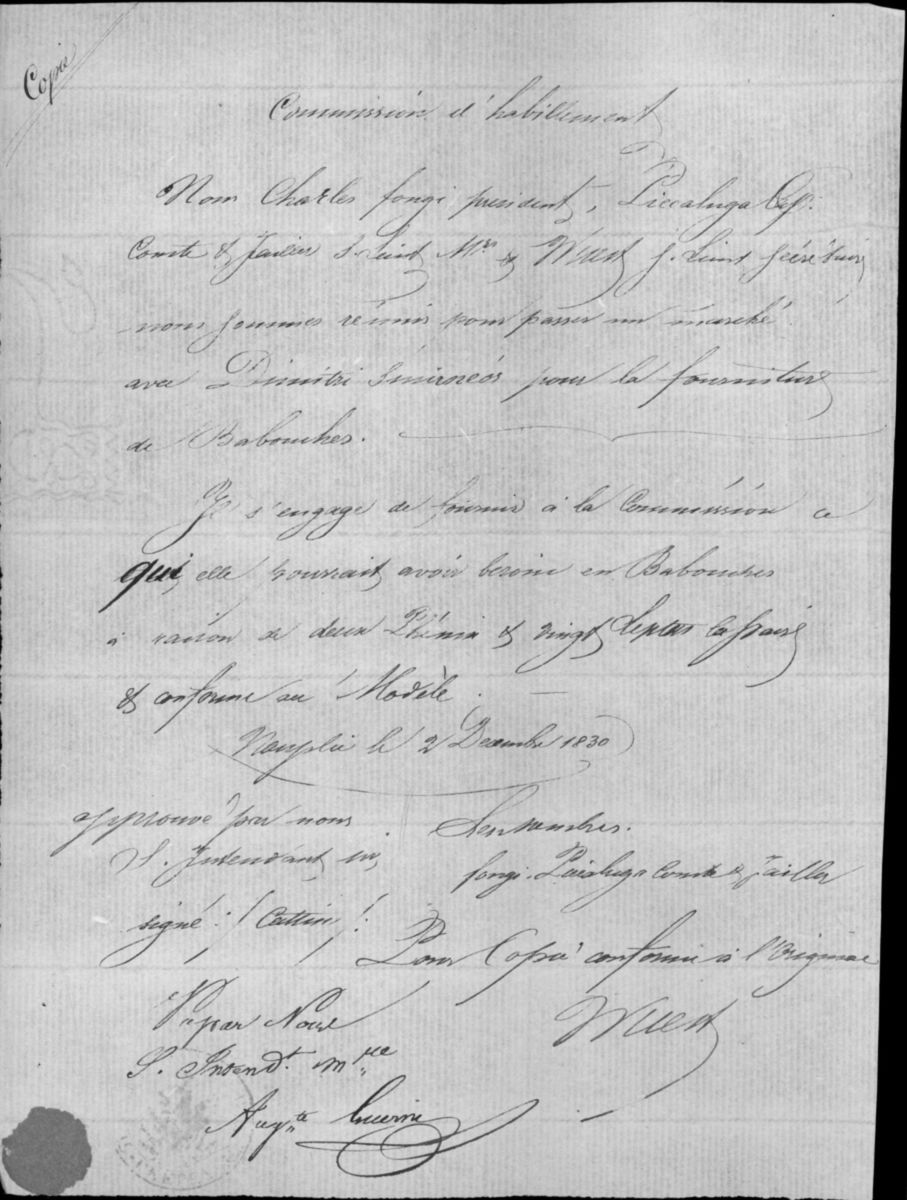 Copie
Commission d'habillement
Nous Charles fongi président, Piccaluga Cap.
Comte & Jailler S. Lieut Mrs & Wuest f. Lieut Sécrétaire
nous sommes réunis pour passer un marché
avec Dimitri pour la fourniture
de Babouches.
Il s'engage de fournir à la Commission ce
qui elle pourrait avoir besoin en Babouches
à raison de deux Phénix & vingt Leptas la paire
& conforme au Modèle.
Nauplie le 2 Decembre 1830
approuvé par nous
S. Intendant
signé: / Cattin /:
Les membres.
fongi. Piccaluga Comte & Jailler
Pour Copie conforme à l'Original
Wuest
Vu par Nous
S. Intendt. Mre
Augte